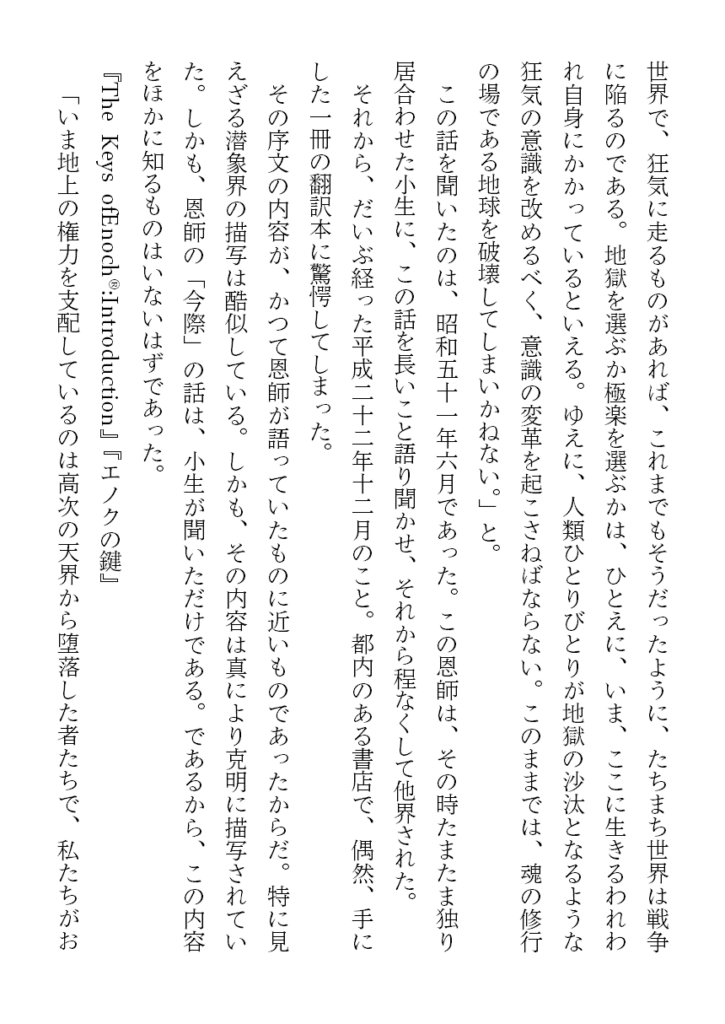 世界で、狂気に走るものがあれば、これまでもそうだったように、たちまち世界は戦争
に陥るのである。地獄を選ぶか極楽を選ぶかは、ひとえに、いま、ここに生きるわれわ
れ自身にかかっているといえる。ゆえに、人類ひとりびとりが地獄の沙汰となるような
狂気の意識を改めるべく、意識の変革を起こさねばならない。このままでは、魂の修行
の場である地球を破壊してしまいかねない。」と。
この話を聞いたのは、昭和五十一年六月であった。この恩師は、その時たまたま独り
居合わせた小生に、この話を長いこと語り聞かせ、それから程なくして他界された。
それから、だいぶ経った平成二十二年十二月のこと。都内のある書店で、偶然、手に
した一冊の翻訳本に驚愕してしまった。
その序文の内容が、かつて恩師が語っていたものに近いものであったからだ。特に見
えざる潜象界の描写は酷似している。しかも、その内容は真により克明に描写されてい
た。しかも、恩師の「今際」の話は、小生が聞いただけである。であるから、この内容
をほかに知るものはいないはずであった。
『The Keys ofEnoch®:Introduction』『エノクの鍵』
「いま地上の権力を支配しているのは高次の天界から堕落した者たちで、私たちがお